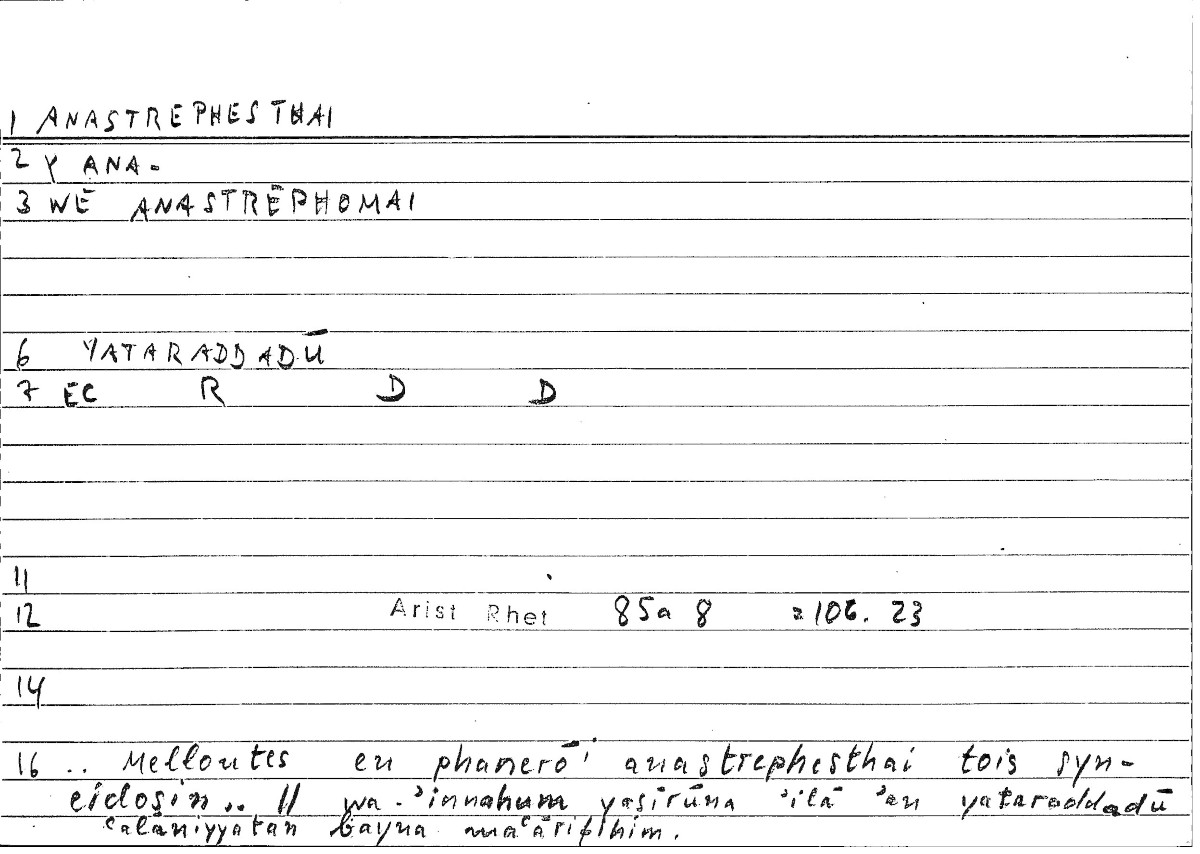 1 ANASTREPHESTHAI
2 Y ANA-
3 WE ANASTRĒPHOMAI
6 YATARADDADŪ
7 EC R D D
11
12 Arist Rhet 85a 8 = 106. 23
14
16 .. Mellontes en phanerō' anastrephesthai tois syn-
eidosin.. // wa-ʾinnahum yaṣīrūna ʾilā ʾan yataraddadū
ʿalāniyyatan bayna maʿārifihim.